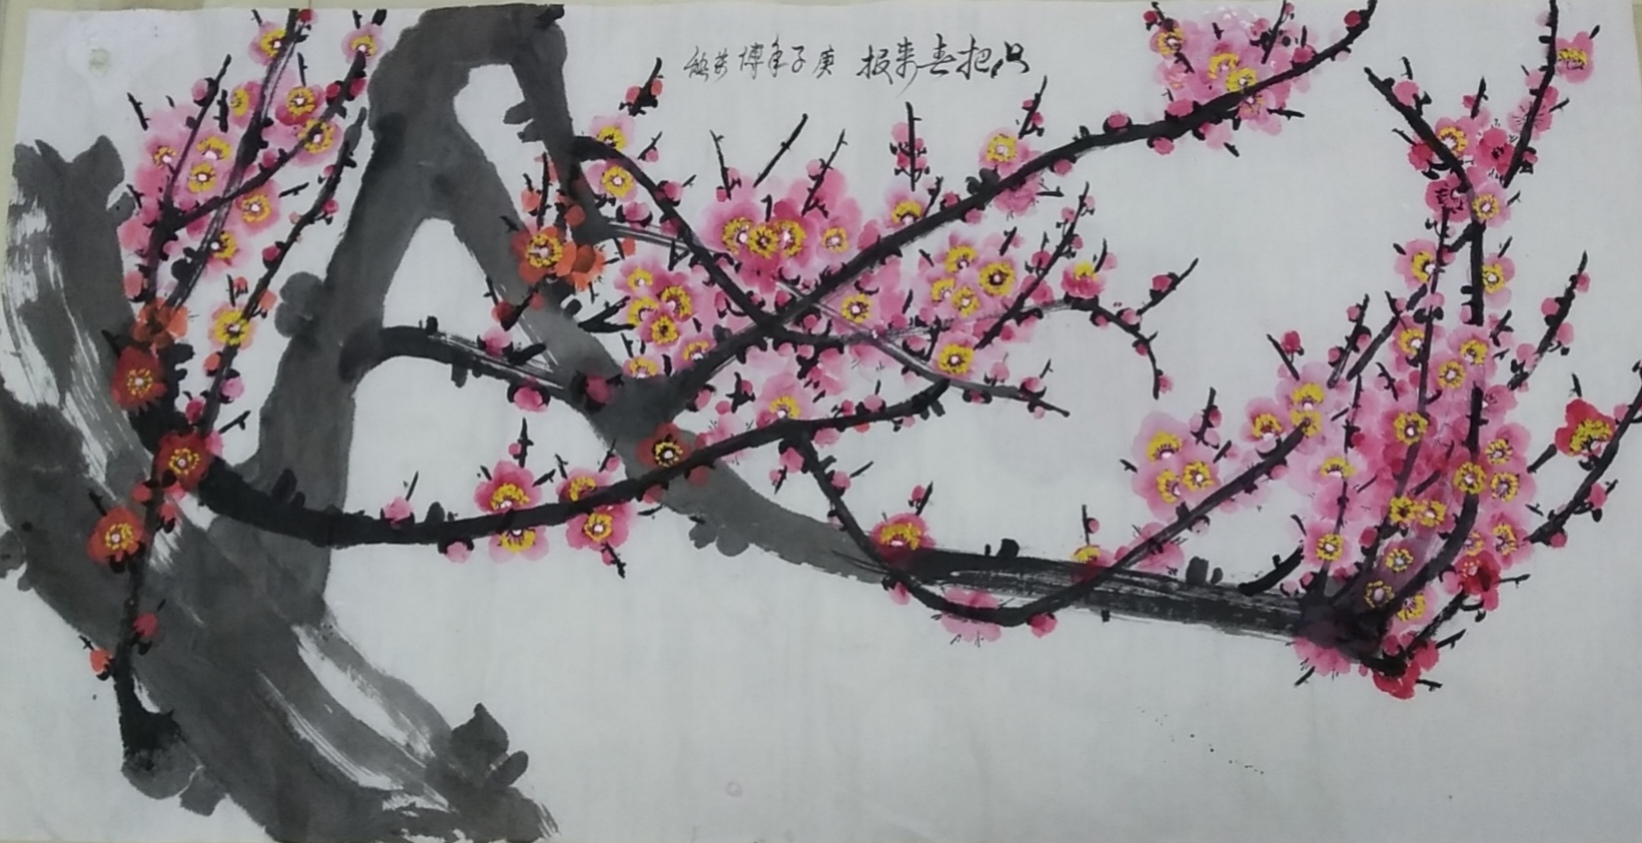 只把春来报 庚子年博